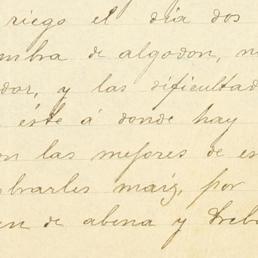 riego el día dos
mbra de algodon, n
dor, y las dificultad
éste á donde hay
on las mejores de es
brarles maiz, por
en de abena y treb